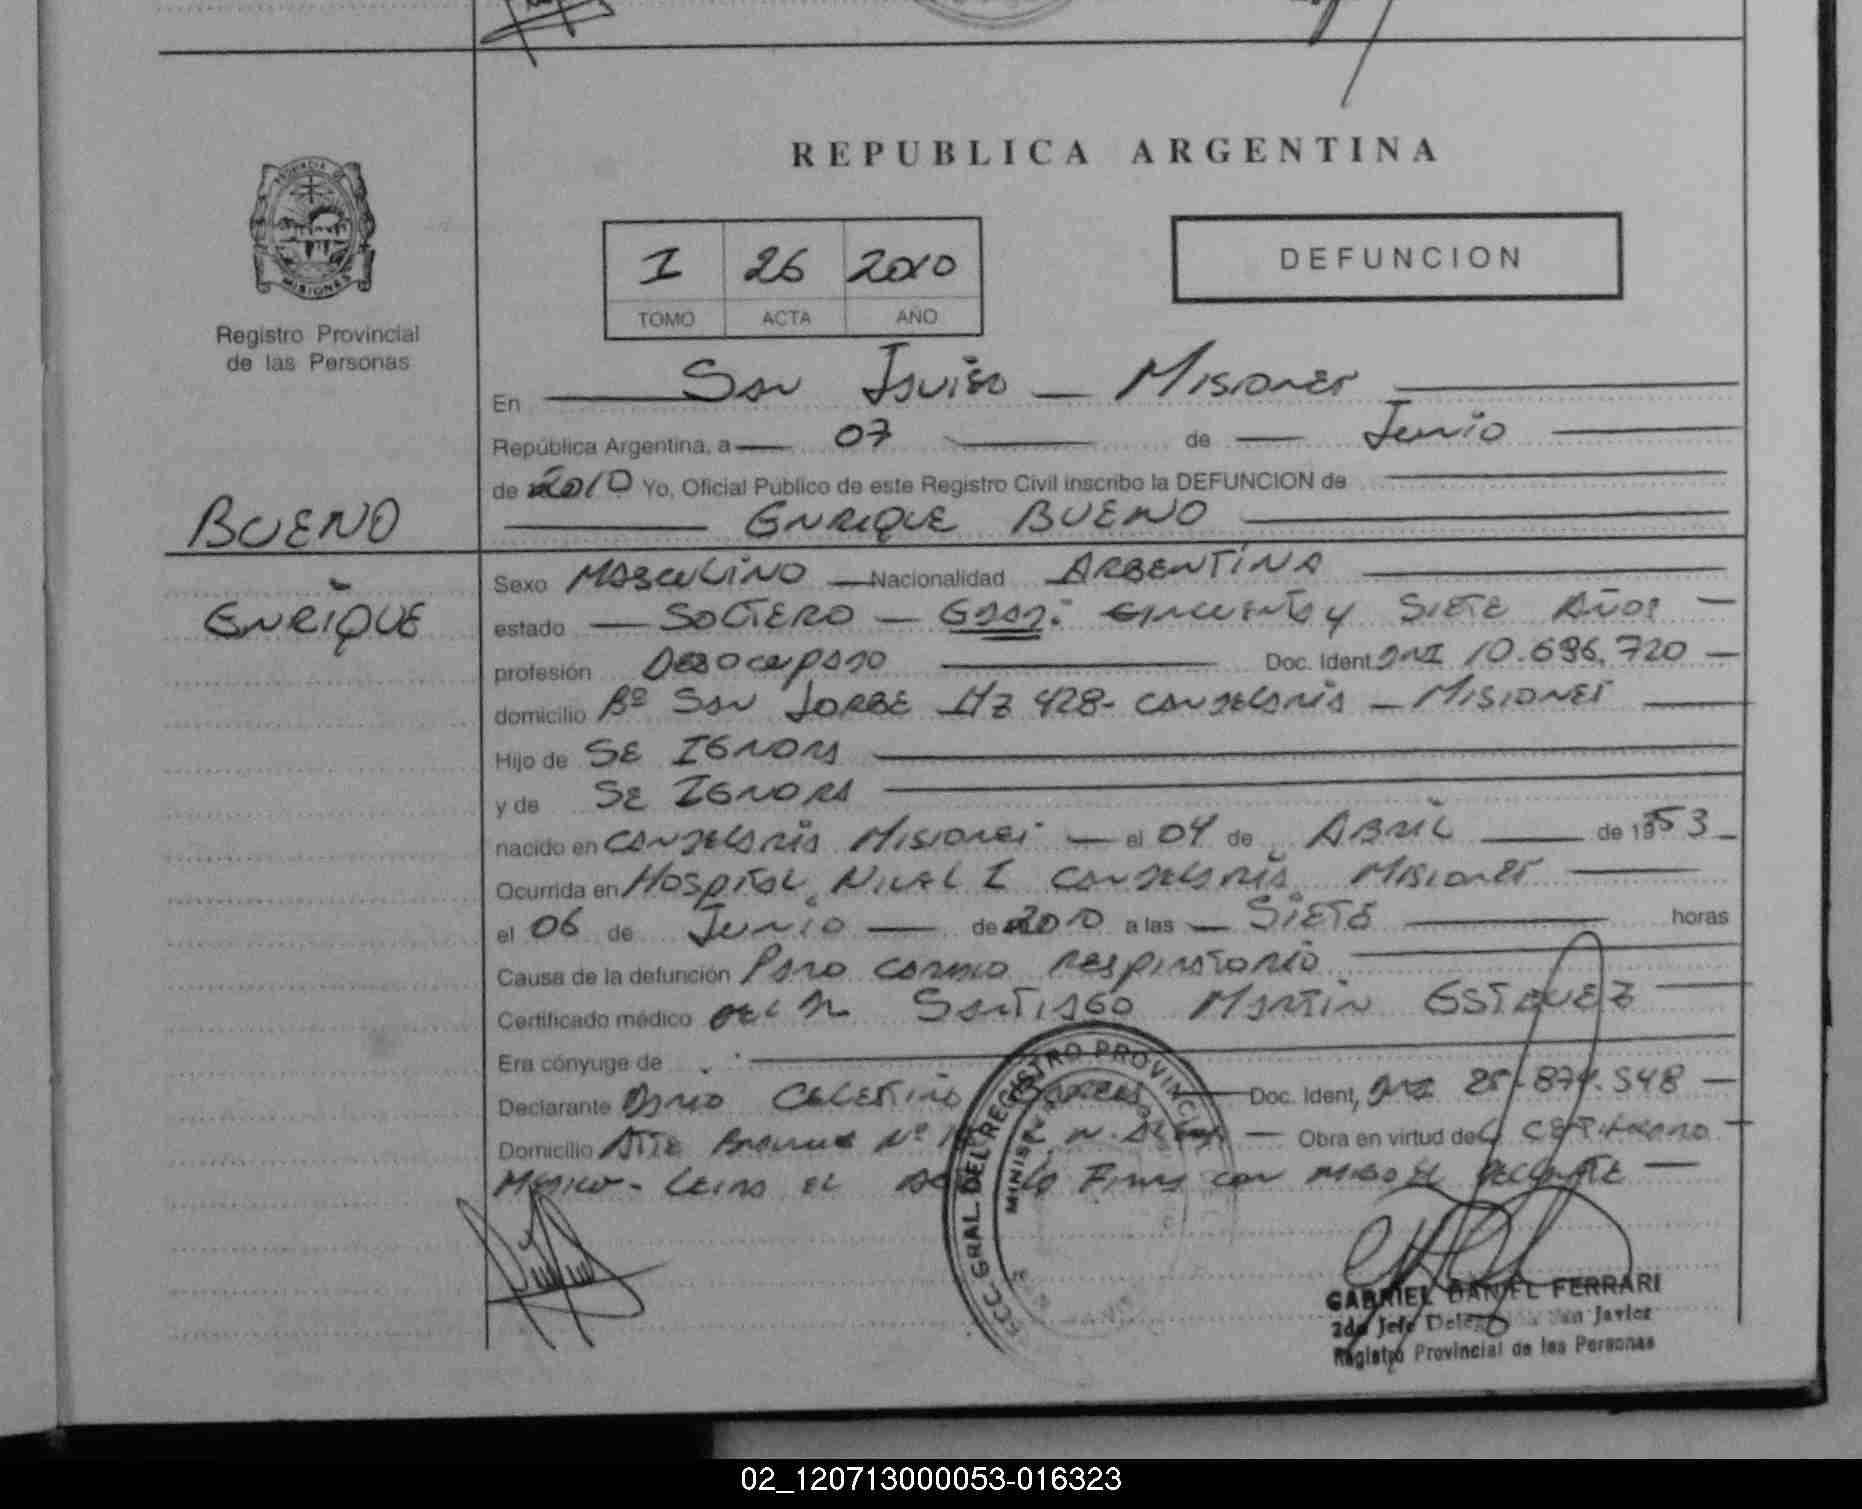 REPUBLICA ARGENTINA
PROVINCIA DE
MISIONES
Registro Provincial
de las Personas
I 26 2010
TOMO ACTA AÑO
DEFUNCION
En San Javier Misiones
República Argentina, a 07 de Junio
de 2010 Yo, Oficial Público de este Registro Civil inscribo la DEFUNCION de
BUENO
ENRIQUE BUENO
ENRIQUE
Sexo MASCULINO Nacionalidad ARGENTINA
estado SOLTERO Edad: Cincuenta y SIETE AÑOS
profesión Desocupado Doc. Ident. DNI 10.696.720
domicilio Bº San JORGE Mz 428- Candelaria - Misiones
Hijo de SE IGNORA
y de SE IGNORA
nacido en Candelaria Misiones el 04 de ABRIL de 1953
Ocurrida en Hospital Nivel I Candelaria Misiones
el 06 de Junio de 2010 a las SIETE horas
Causa de la defunción Paro cardio respiratorio
Certificado médico del Dr Santiago Martin ESTEVEZ
Era cónyuge de
Declarante Dario CELESTINO Doc. Ident, DNI 25.874.548
Domicilio Alte Brown Nº Obra en virtud del CERTIFICADO
Médico- Leida el Acta la Firma con migo el declarante
DECC. GRAL. DEL REGISTRO PROVINCIAL
GABRIEL DANIEL FERRARI
2do Jefe Delegación San Javier
Registro Provincial de las Personas
02_120713000053-016323